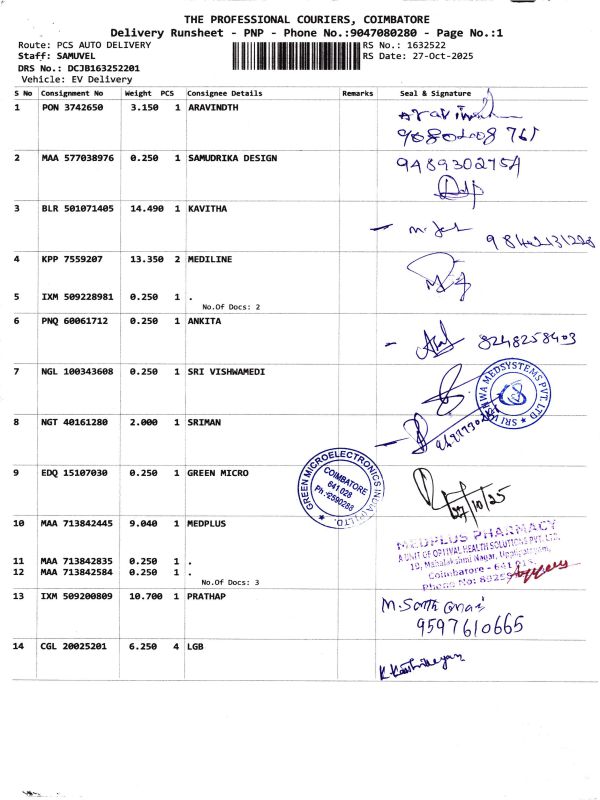 THE PROFESSIONAL COURIERS, COIMBATORE
Delivery Runsheet - PNP - Phone No.:9047080280 - Page No.:1
Route: PCS AUTO DELIVERY
Staff: SAMUVEL
DRS No.: DCJB163252201
Vehicle: EV Delivery
RS No.: 1632522
RS Date: 27-Oct-2025
S No Consignment No Weight PCS Consignee Details Remarks Seal & Signature
1 PON 3742650 3.150 1 ARAVINDTH
2 MAA 577038976 0.250 1 SAMUDRIKA DESIGN
9489302754
3 BLR 501071405 14.490 1 KAVITHA
4 KPP 7559207 13.350 2 MEDILINE
5 IXM 509228981 0.250 1 .
No.Of Docs: 2
6 PNQ 60061712 0.250 1 ANKITA
8248258403
7 NGL 100343608 0.250 1 SRI VISHWAMEDI
SRI VISHWA MEDSYSTEMS PVT. LTD
8 NGT 40161280 2.000 1 SRIMAN
9 EDQ 15107030 0.250 1 GREEN MICRO
GREEN MICROELECTRONICS INDIA (P) LTD.
COIMBATORE
641 028
Ph.:2590288
27/10/25
10 MAA 713842445 9.040 1 MEDPLUS
MEDPLUS PHARMACY
A UNIT OF OPTIVAL HEALTH SOLUTIONS PVT. LTD.
19, Mahalakshmi Nagar, Uppilipalayam,
Coimbatore - 641 015
Phone No:
11 MAA 713842835 0.250 1 .
12 MAA 713842584 0.250 1 .
No.Of Docs: 3
13 IXM 509200809 10.700 1 PRATHAP
9597610665
14 CGL 20025201 6.250 4 LGB